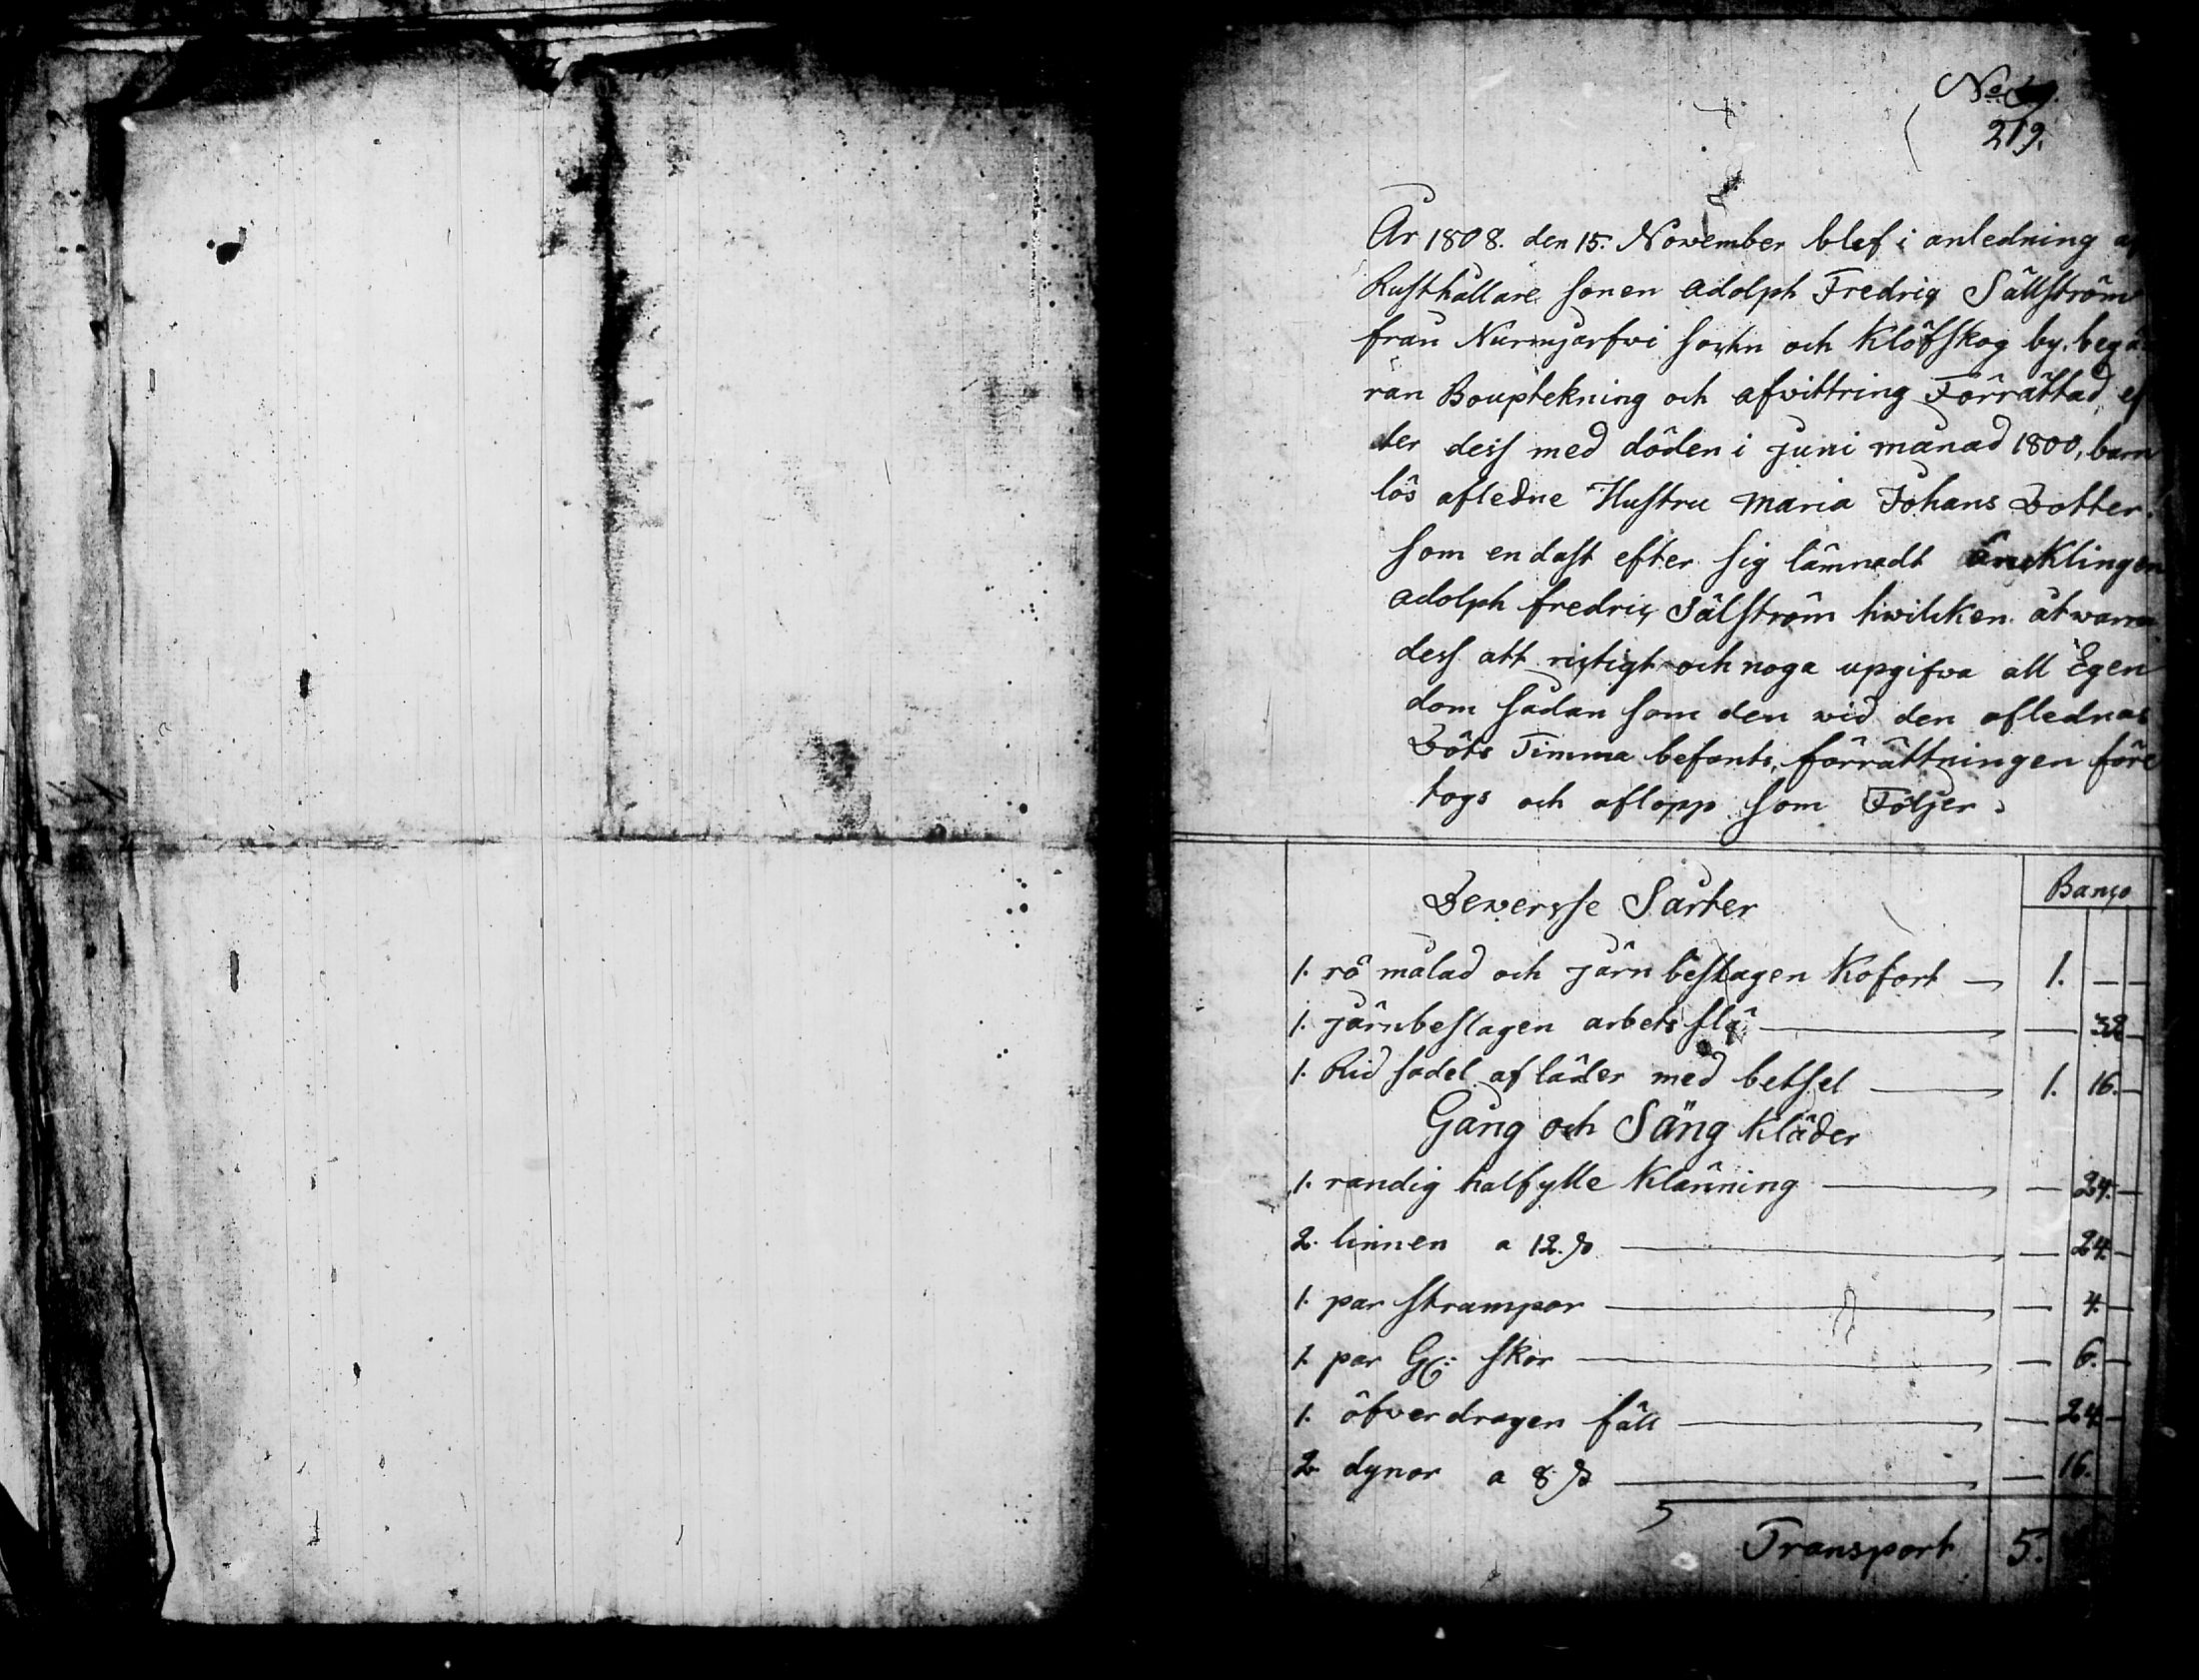 No
219.
År 1808. den 15. November blef i anledning af
Rusthållare sonen Adolph Fredriq Sällström
från Nurmijärfvi sochn och Klöfskog by. begä
ran Bouptekning och afvittring Förrättad ef
ter dess med döden i juni månad 1800, barn
lös afledne Hustru Maria Johans Dotter.
som endast efter sig lämnadt Encklingen
Adolph fredric Sälström hwilcken åtwarna
des att ricktigt och noga upgifva all Egen
dom sådan som den wid den aflednas
Döts Timma befants, förrättningen före
togs och aflopp som Följer.
Dewersse Sarter Banco
1. rö målad och järn beslagen Kofort — 1. — —
1. järnbeslagen arbets slä — — 32 —
1. Rid sadel af läder med betsel — 1. 16. —
Gång och Säng kläder
1. randig halfylle Klänning — — 24. —
2. linnen a 12. ß — — 24. —
1. par strumpor — — 4. —
1. par Gl: skor — — 6. —
1. öfverdragen fäll — — 24. —
2 dynor a 8 ß — — 16.
Transport 5.